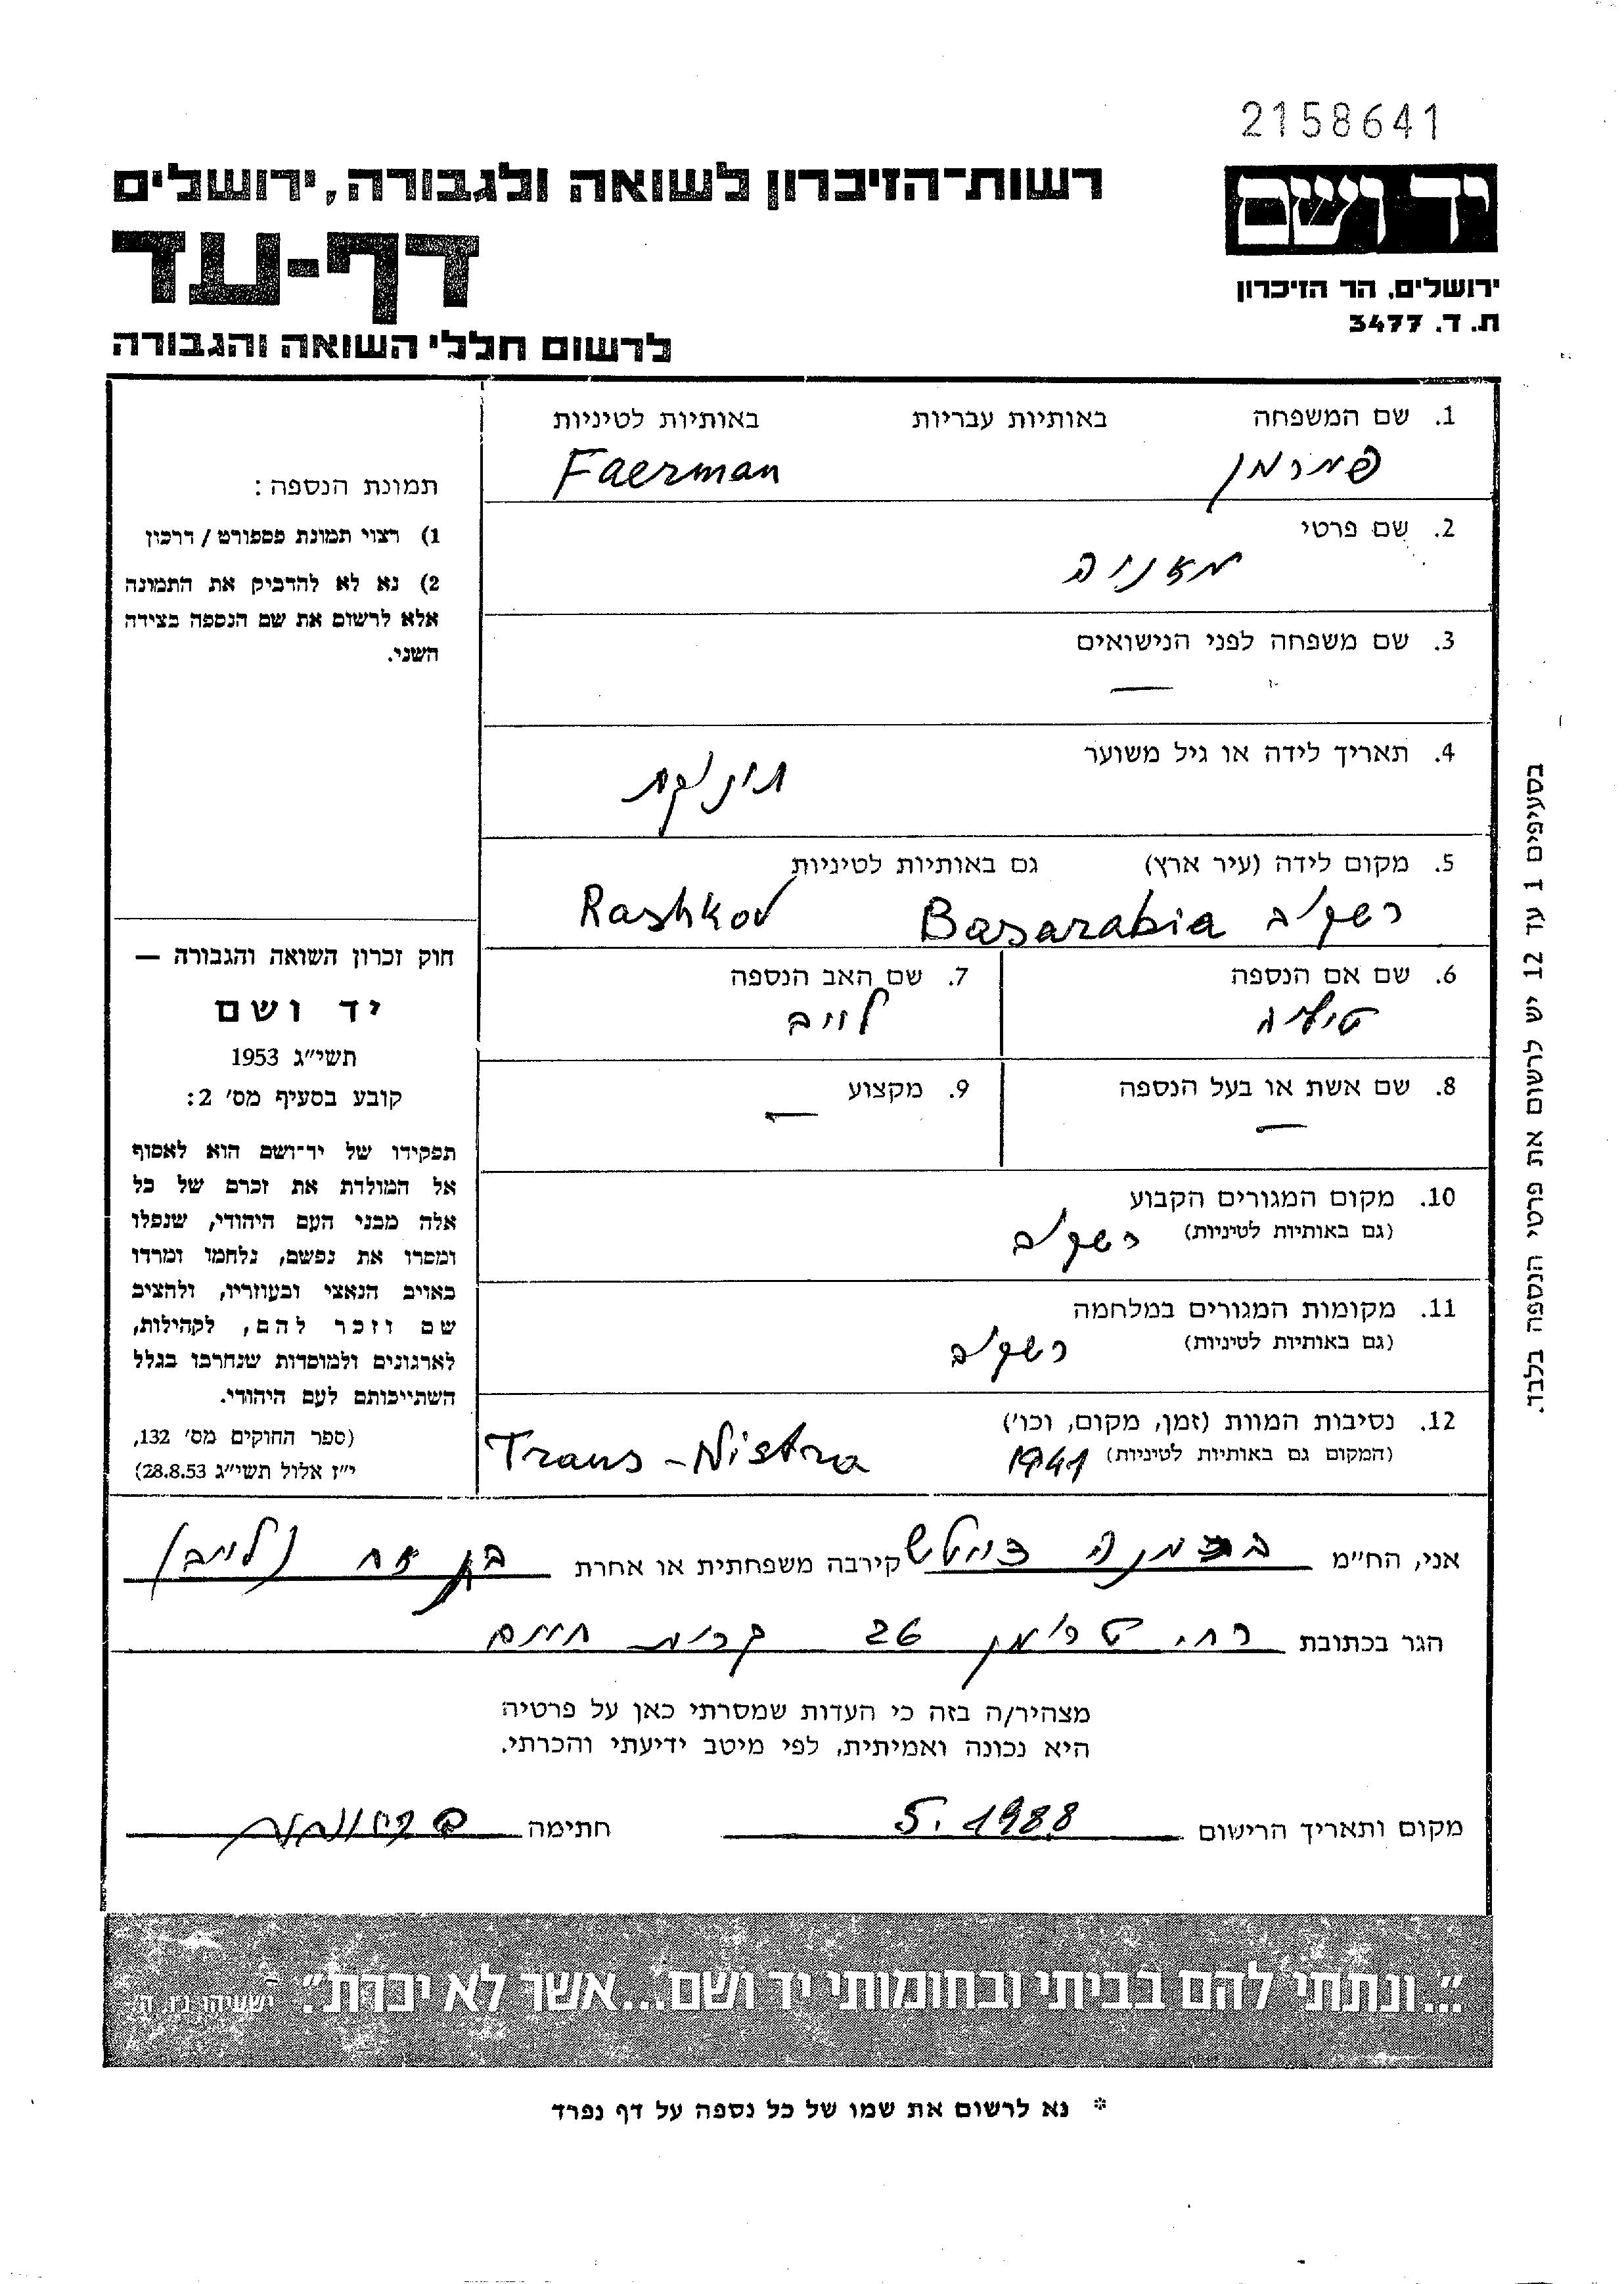 2158641
יד ושם
רשות־הזיכרון לשואה ולגבורה, ירושלים
דף-עד
ירושלים, הר הזיכרון
ת. ד. 3477
לרשום חללי השואה והגבורה
1. שם המשפחה באותיות עבריות באותיות לטיניות
Faerman
2. שם פרטי
מאניה
3. שם משפחה לפני הנישואים
—
4. תאריך לידה או גיל משוער
תינוקת
5. מקום לידה (עיר ארץ) גם באותיות לטיניות
רשקוב Basarabia Rashkov
6. שם אם הנספה
7. שם האב הנספה
לייב
8. שם אשת או בעל הנספה
—
9. מקצוע
—
10. מקום המגורים הקבוע
(גם באותיות לטיניות) רשקוב
11. מקומות המגורים במלחמה
(גם באותיות לטיניות) רשקוב
12. נסיבות המוות (זמן, מקום, וכו')
(המקום גם באותיות לטיניות) 1941 Trans-Nistra
תמונת הנספה:
1) רצוי תמונת פספורט / דרכון
2) נא לא להדביק את התמונה
אלא לרשום את שם הנספה בצידה
השני.
חוק זכרון השואה והגבורה —
יד ושם
תשי״ג 1953
קובע בסעיף מס׳ 2:
תפקידו של יד־ושם הוא לאסוף
אל המולדת את זכרם של כל
אלה מבני העם היהודי, שנפלו
ומסרו את נפשם, נלחמו ומרדו
באויב הנאצי ובעוזריו, ולהציב
שם וזכר להם, לקהילות,
לארגונים ולמוסדות שנחרבו בגלל
השתייכותם לעם היהודי.
(ספר החוקים מס׳ 132,
י״ז אלול תשי״ג 28.8.53)
בסעיפים 1 עד 12 יש לרשום את פרטי הנספה בלבד.
אני, הח״מ קירבה משפחתית או אחרת בן אח (לייב)
הגר בכתובת רח׳ 26 קרית חיים
מצהיר/ה בזה כי העדות שמסרתי כאן על פרטיה
היא נכונה ואמיתית, לפי מיטב ידיעתי והכרתי.
מקום ותאריך הרישום 5.1988 חתימה
״...ונתתי להם בביתי ובחומותי יד ושם...אשר לא יכרת״. ישעיהו נ״ו, ה׳
* נא לרשום את שמו של כל נספה על דף נפרד